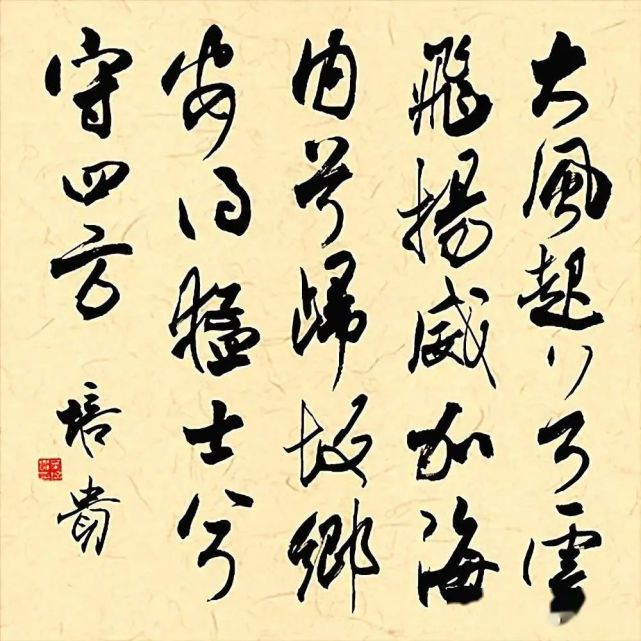 大風起兮雲
飛揚威加海
内兮歸故鄉
安得猛士兮
守四方
培貴